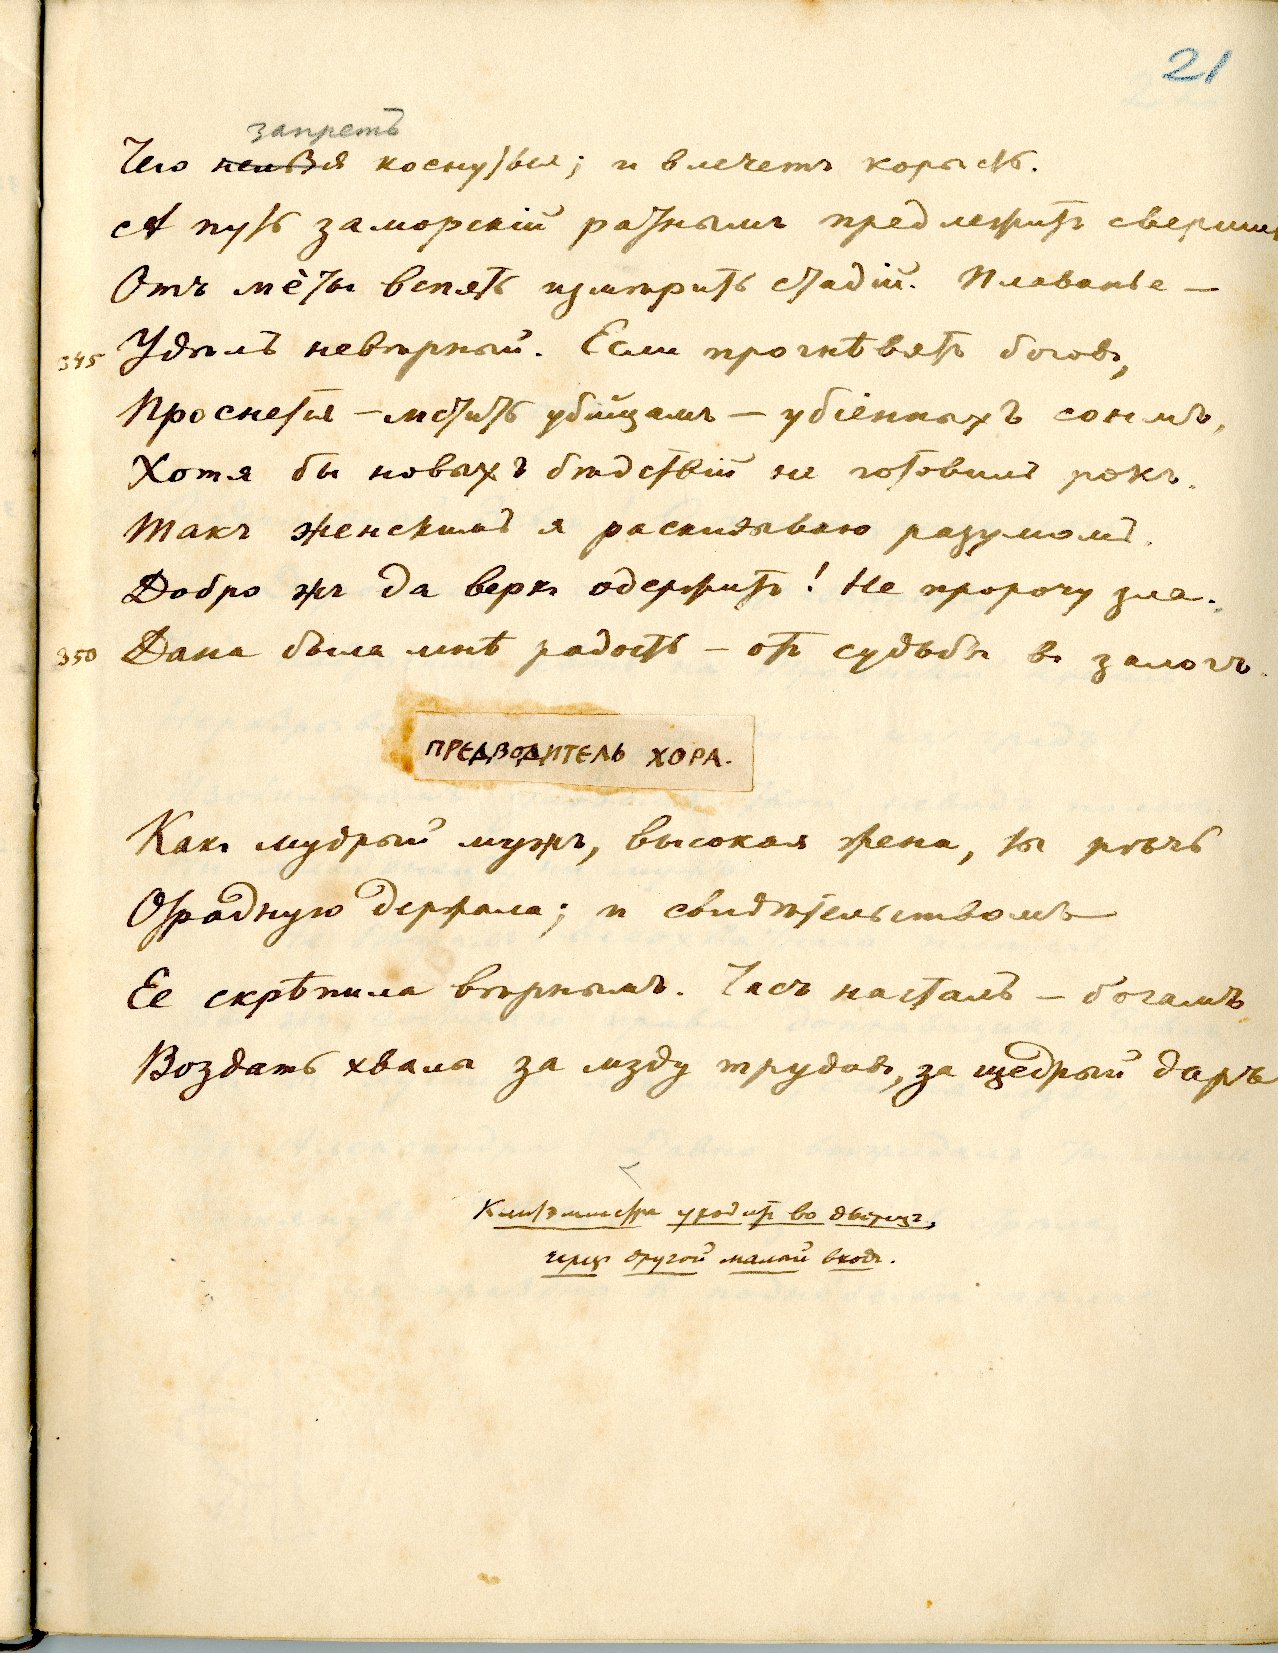 21
запретъ
Чего нельзя коснуться; и влечетъ корысть.
А путь заморскій ратнымъ предлежитъ свершить
Отъ мёты вспять измѣрить стадій. Плаванье —
345 Удѣлъ невѣрный. Если прогнѣвятъ боговъ,
Проснется — мстить убійцамъ — убіенныхъ сонмъ,
Хотя бы новыхъ бѣдствій не готовилъ рокъ.
Такъ женскимъ я раскидываю разумомъ.
Добро жъ да верхъ одержитъ! Не пророчу зла.
350 Дана была мнѣ радость — отъ судьбы въ залогъ.
ПРЕДВОДИТЕЛЬ ХОРА.
Какъ мудрый мужъ, высокая жена, ты рѣчь
Отрадную держала; и свидѣтельствомъ
Ее скрѣпила вѣрнымъ. Часъ насталъ — богамъ
Воздать хвалы за мзду трудовъ, за щедрый даръ
Клитэмнестра уходитъ во дворецъ,
черезъ другой малый входъ.